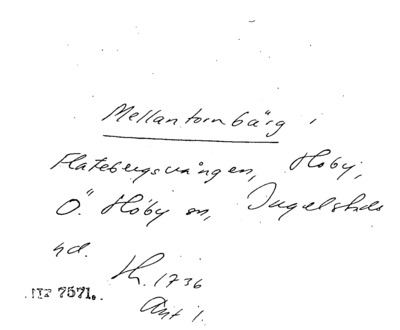 Mellantornbärg i
Flatebergsvången, Höby,
Ö. Höby sn, Ingelstads
hd.
Lh. 1736
Akt 1.
NF 7571.